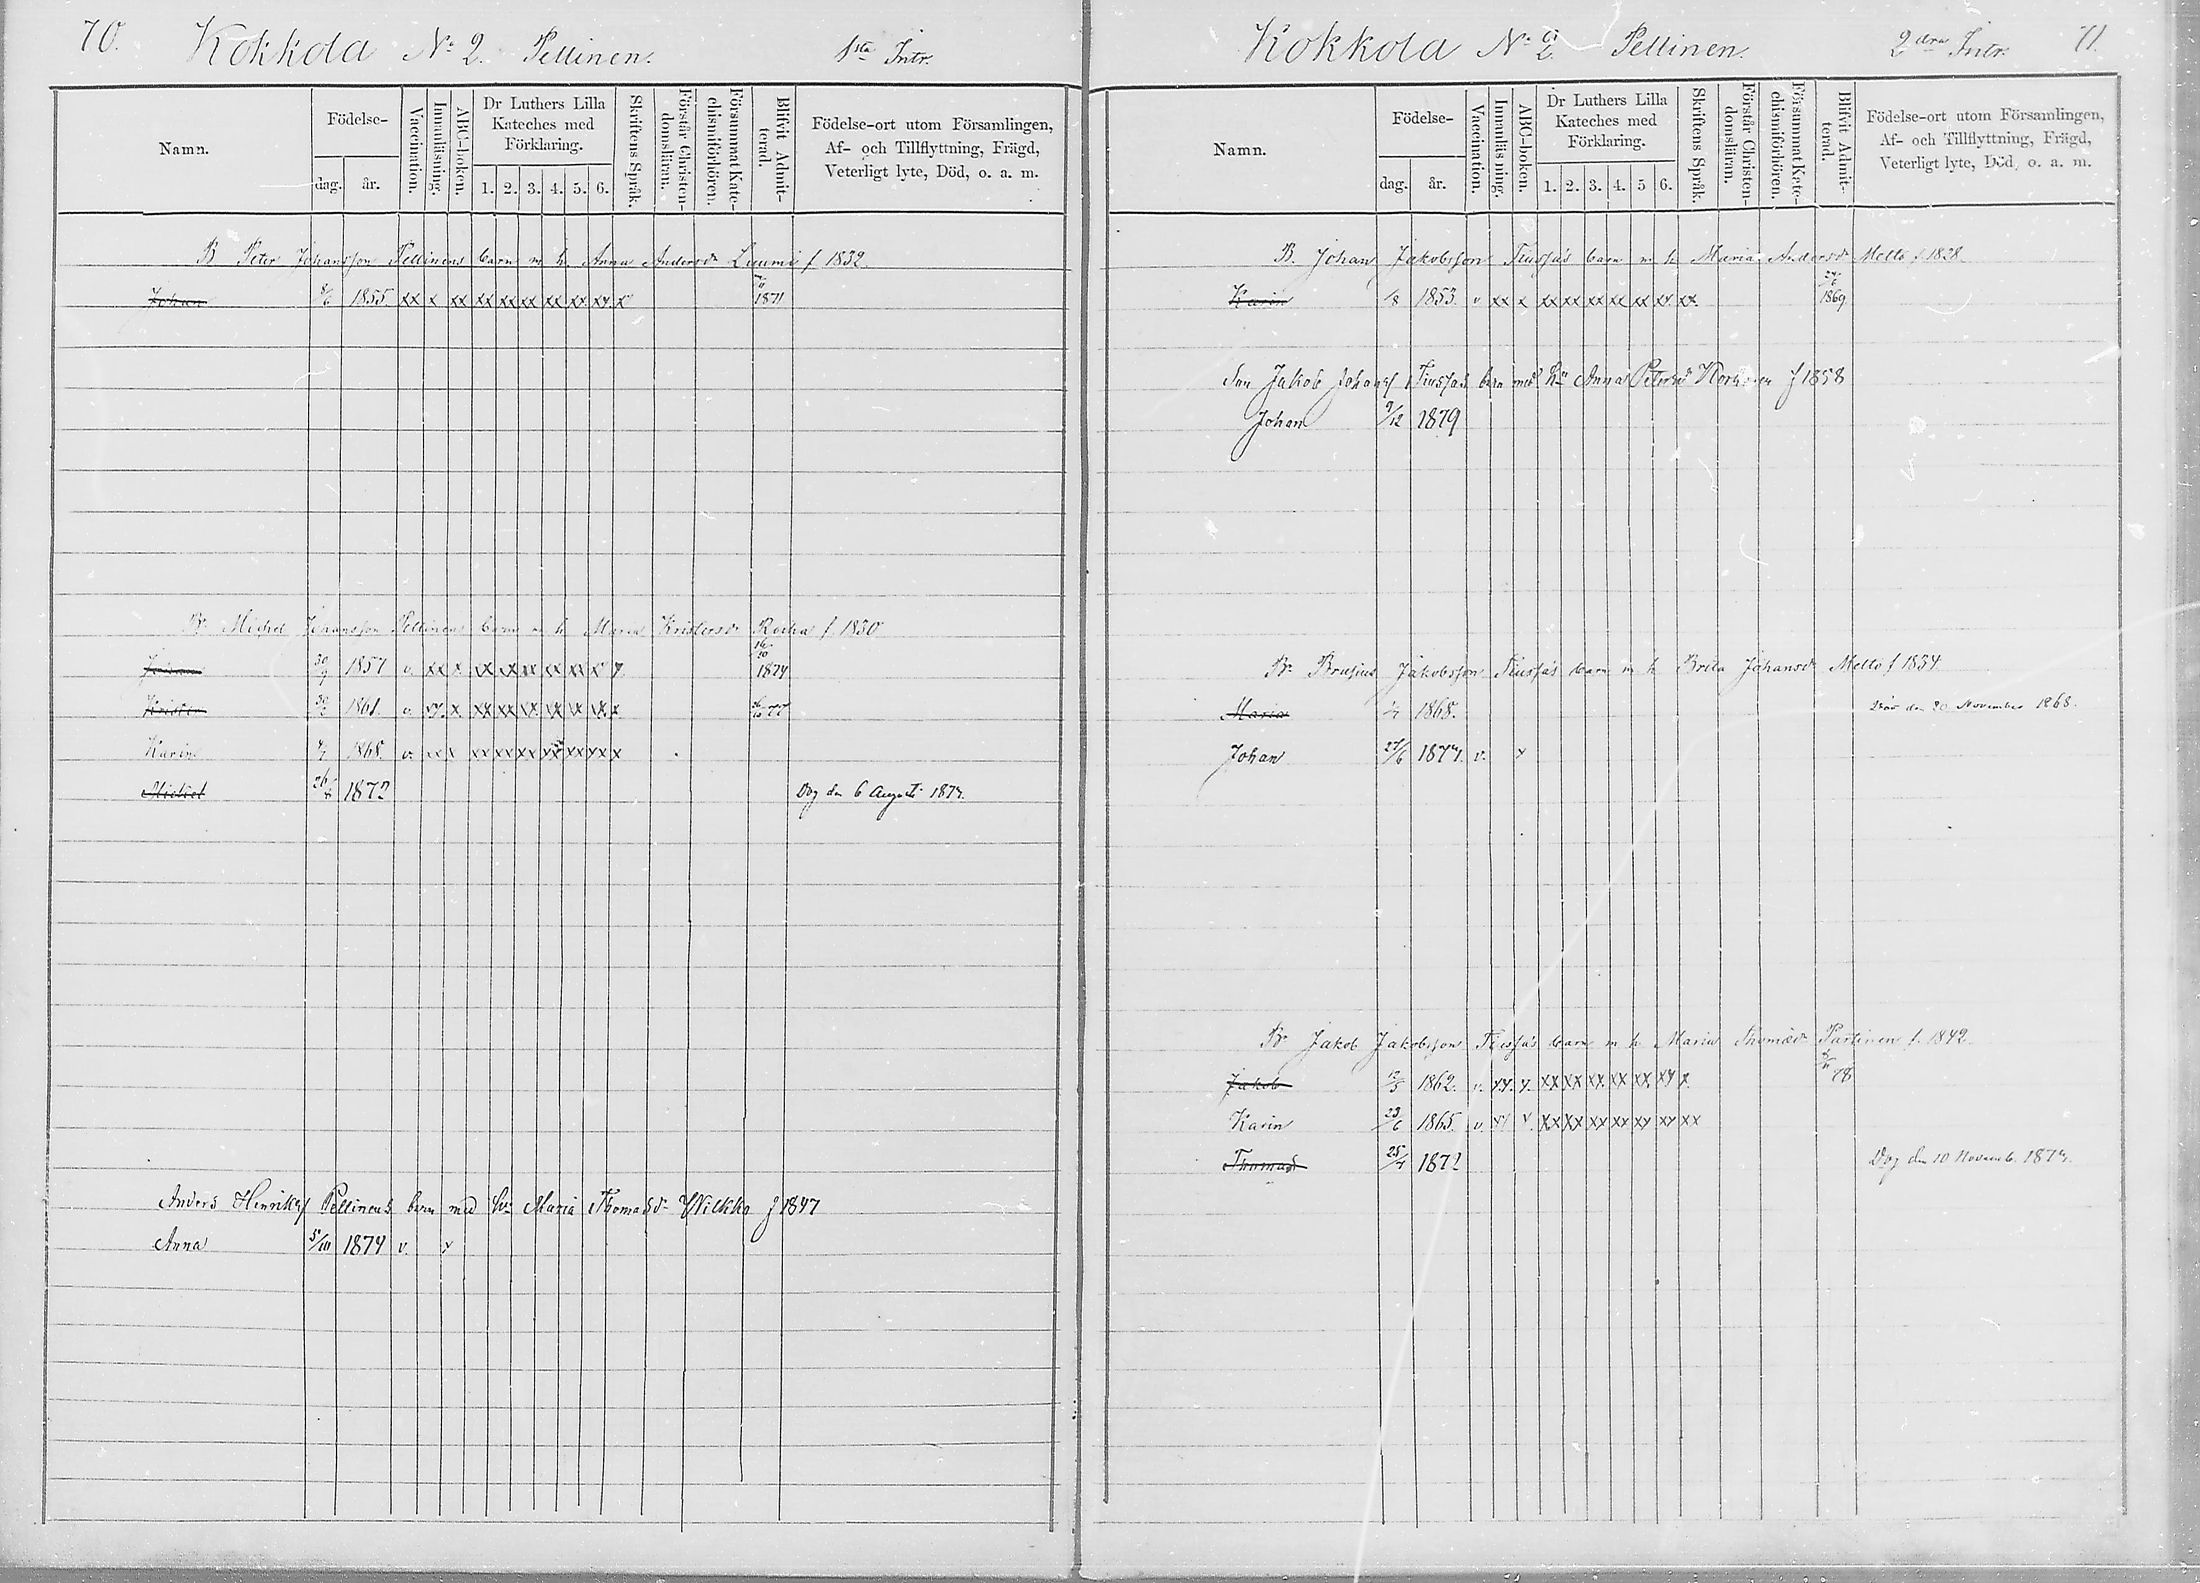 70. Kokkola No 2. Pellinen. 1sta Intr.
Namn.
Födelse-
dag. år.
Vaccination.
Innanläsning.
ABC-boken.
Dr Luthers Lilla
Kateches med
Förklaring.
1. 2. 3. 4. 5. 6.
Skriftens Språk.
Förstår Christen-
domsläran.
Försummat Kate-
chismiförhören.
Blifvit Admit-
terad.
Födelse-ort utom Församlingen,
Af- och Tillflyttning, Frägd,
Veterligt lyte, Död, o. a. m.
B Peter Johansson Pellinens barn m h. Anna Andersdr Luumi f 1832
Johan 1855 xx x xx xx xx xx xx xx xx x 1871
Br Michel Johansson Pellinens barn m h Maria Kristersdr f. 1830
Johan 30/9 1857 v. xx x xx xx xx xx xx x x 1874
1861. v. xx. x xx xx xx xx xx xx x 77
Karin 1868. v. xx x xx xx xx xx xx xx x
Michel 1872 Dog den 6 Augusti 1874.
Anders Henrikss Pellinens barn med hu Maria Thomasdr Wilkko f 1847
Anna 5/10 1874 v. x
Kokkola No 2. Pellinen. 2dra Intr. 71.
Namn.
Födelse-
dag. år.
Vaccination.
Innanläsning.
ABC-boken.
Dr Luthers Lilla
Kateches med
Förklaring.
1. 2. 3. 4. 5 6.
Skriftens Språk.
Förstår Christen-
domsläran.
Försummat Kate-
chismiförhören.
Blifvit Admit-
terad.
Födelse-ort utom Församlingen,
Af- och Tillflyttning, Frägd,
Veterligt lyte, Död, o. a. m.
B. Johan Jakobsson Tiussas barn m h Maria Andersdr Melto f. 1828
Karin 1/8 1853. v xx x xx xx xx xx xx xx xx 1869
Son Jakob Johanss Tiussas barn med hu Anna Petersdr Korhonen f 1858
Johan 9/12 1879
Br Brusius Jakobsson Tiussas barn m h Brita Johansdr Melto f 1834
Maria 1868. den 20 November 1868.
Johan 27/6 1874. v. x
Br Jakob Jakobsson Tiussas barn m h Maria Thomasdr Partinen f. 1842
Jakob 12/5 1862. v. xx. x. xx xx xx xx xx xx x 78
Karin 23/6 1865. v. xx x xx xx xx xx xx xx xx
Thomas 25/4 1872 Dog den 10 Novemb. 1874.